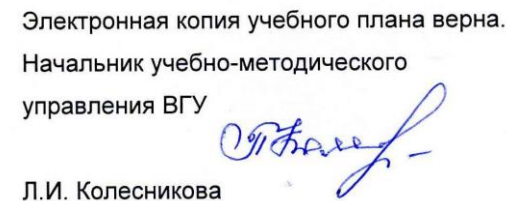 Электронная копия учебного плана верна.
Начальник учебно-методического
управления ВГУ
Л.И. Колесникова